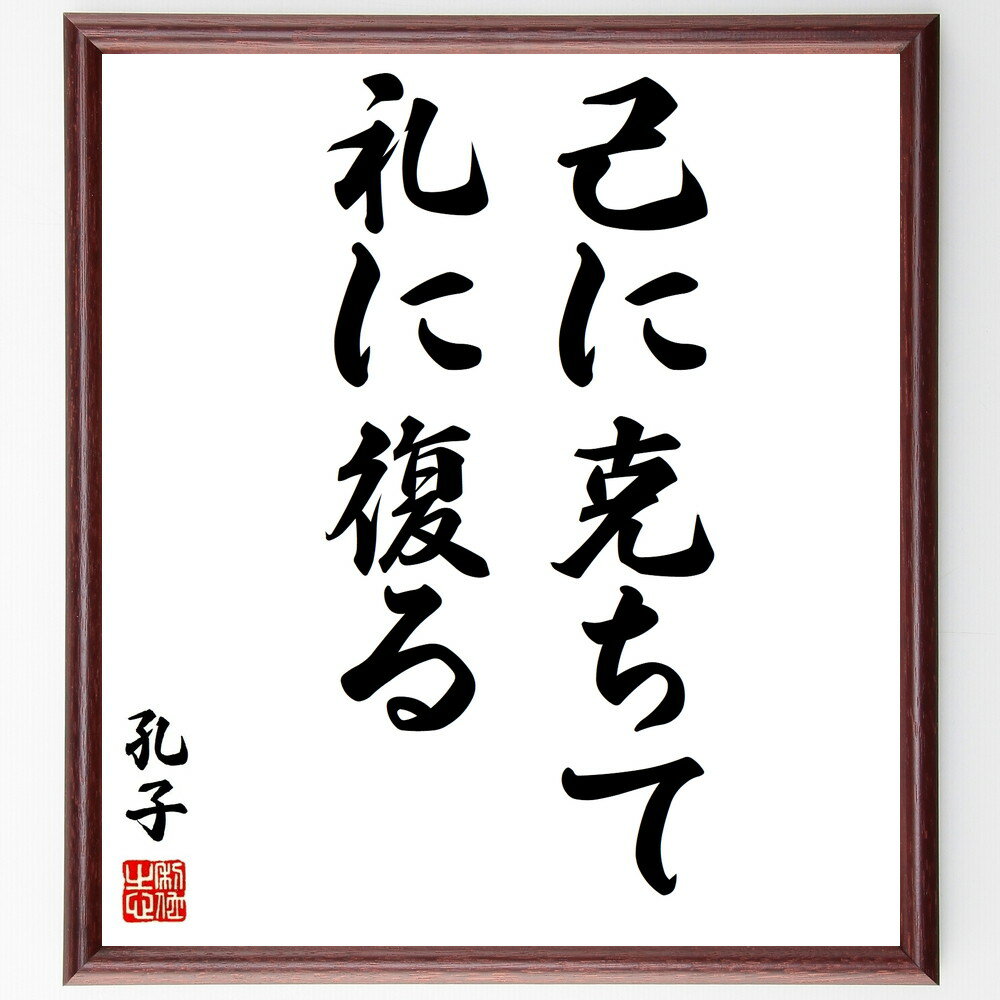 己に克ちて
礼に復る
孔子